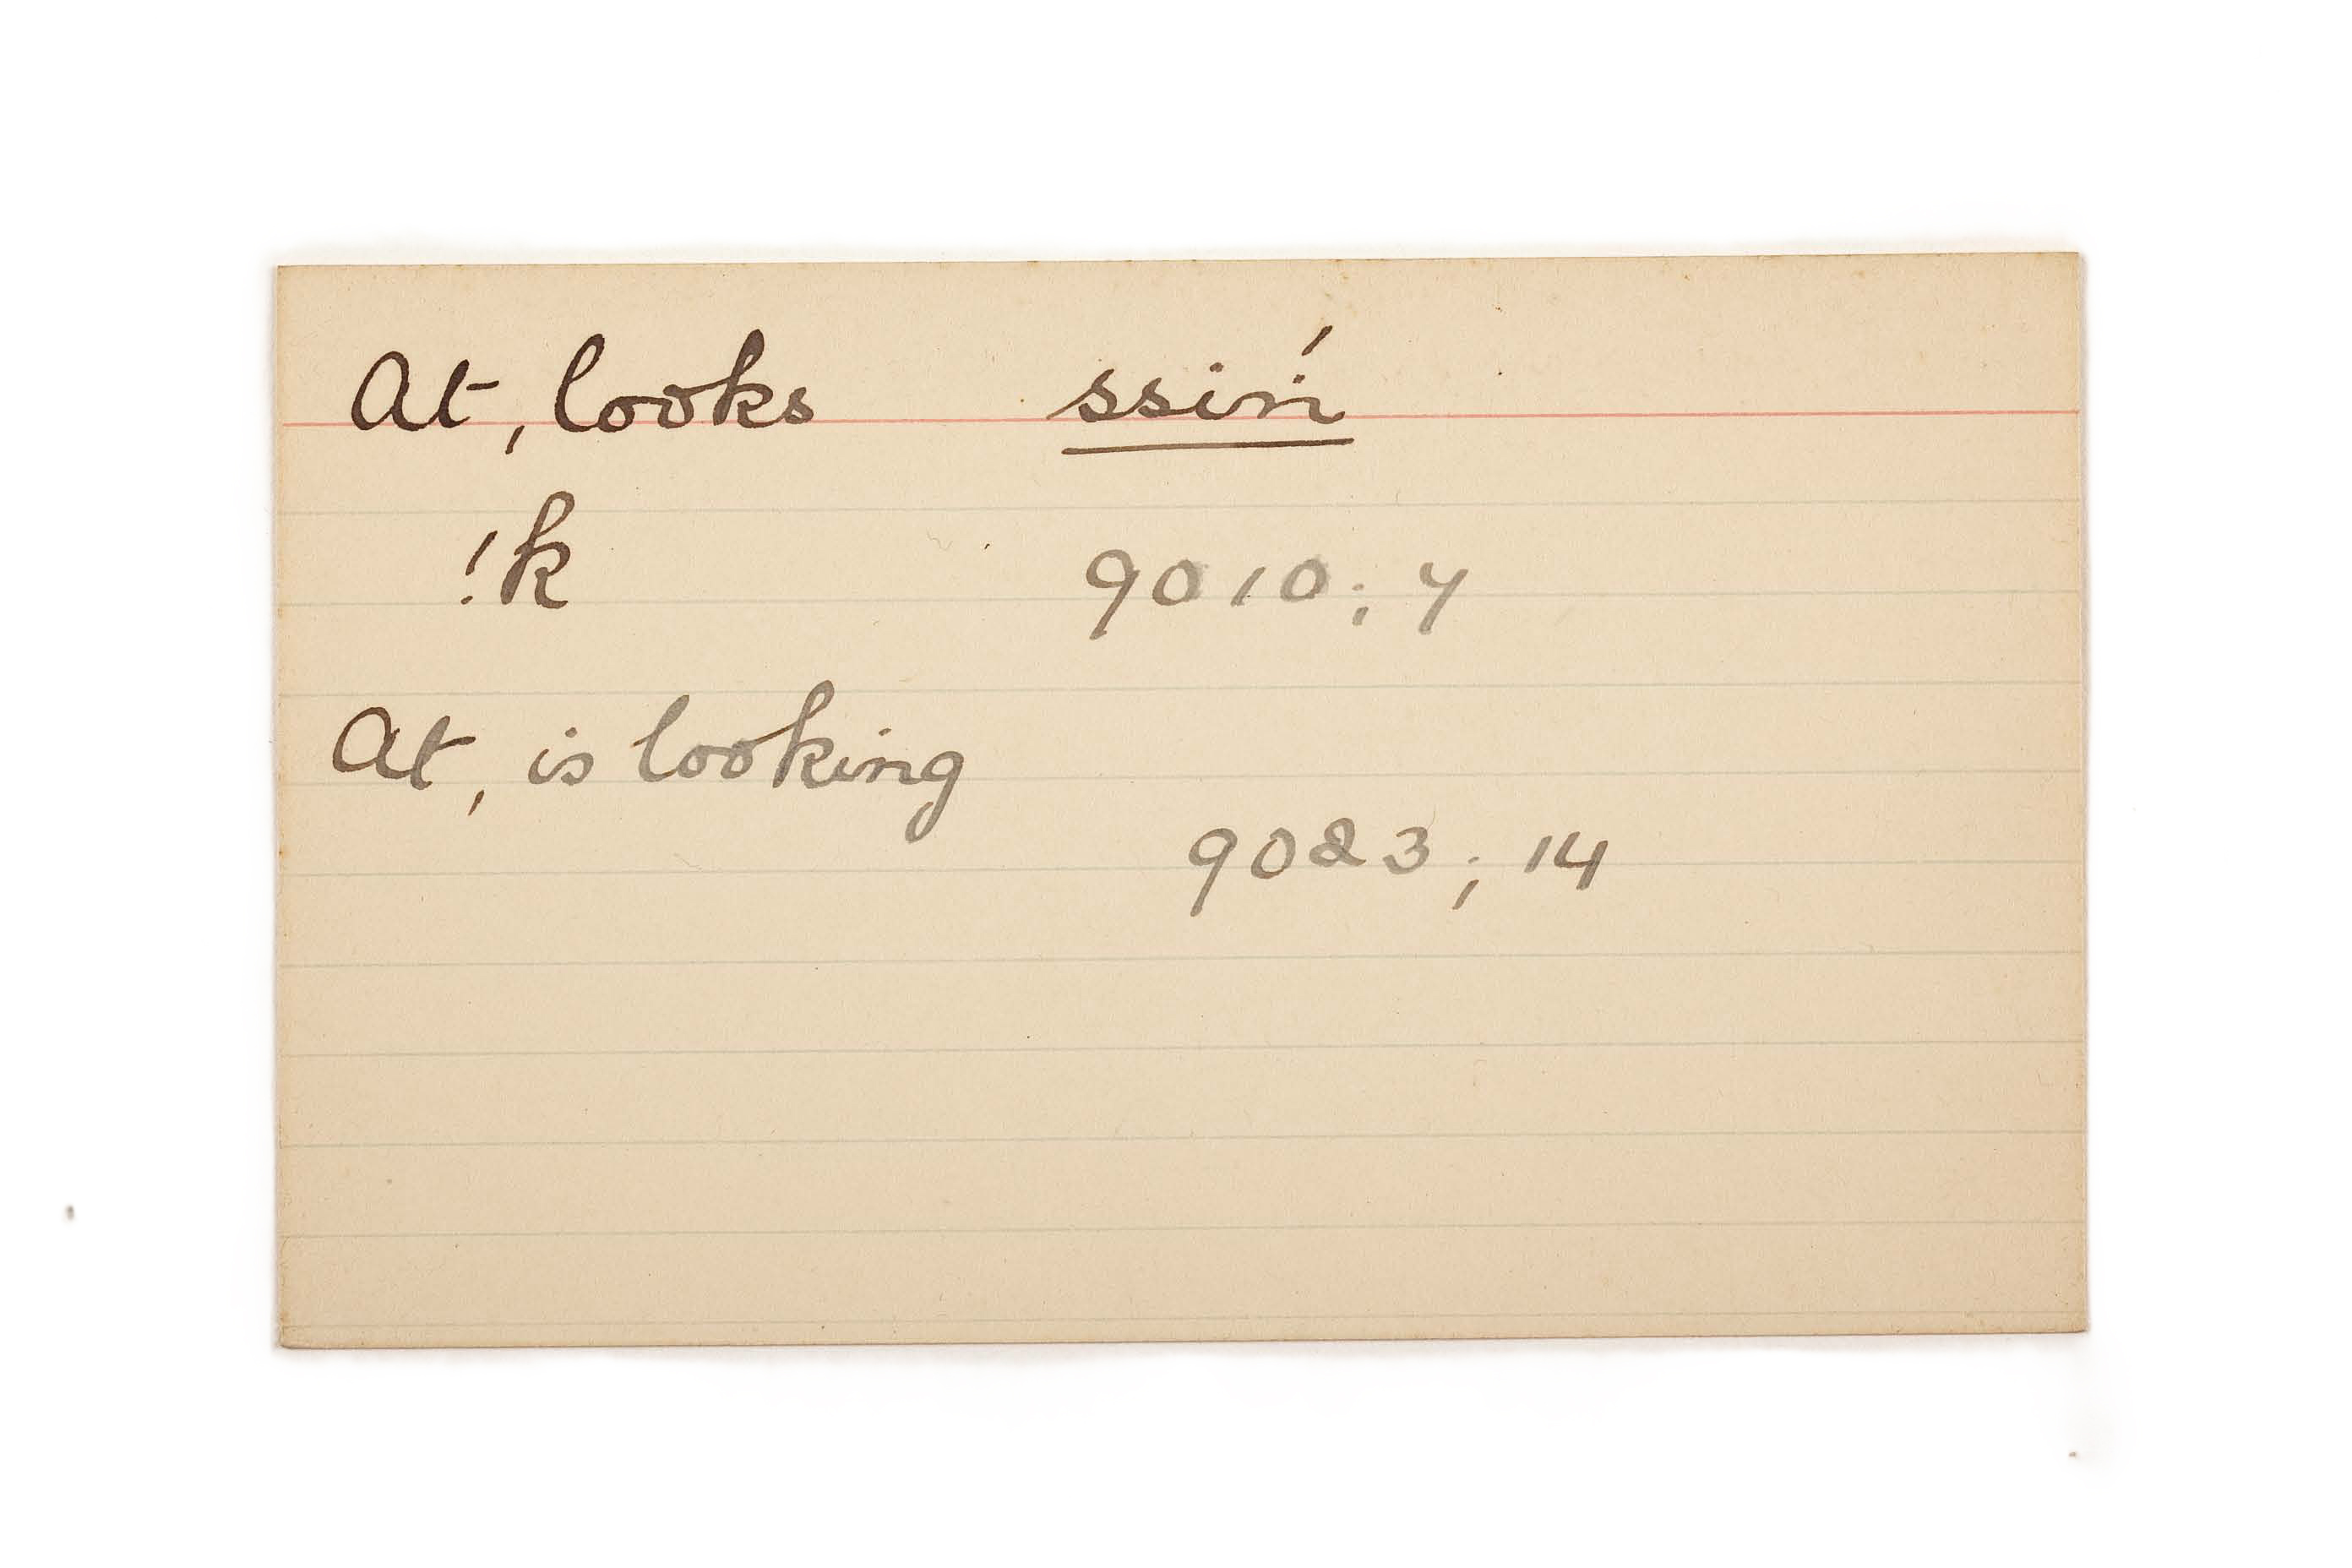 At, looks ssiṅ́
!k 9010; 7
At, is looking
9023; 14